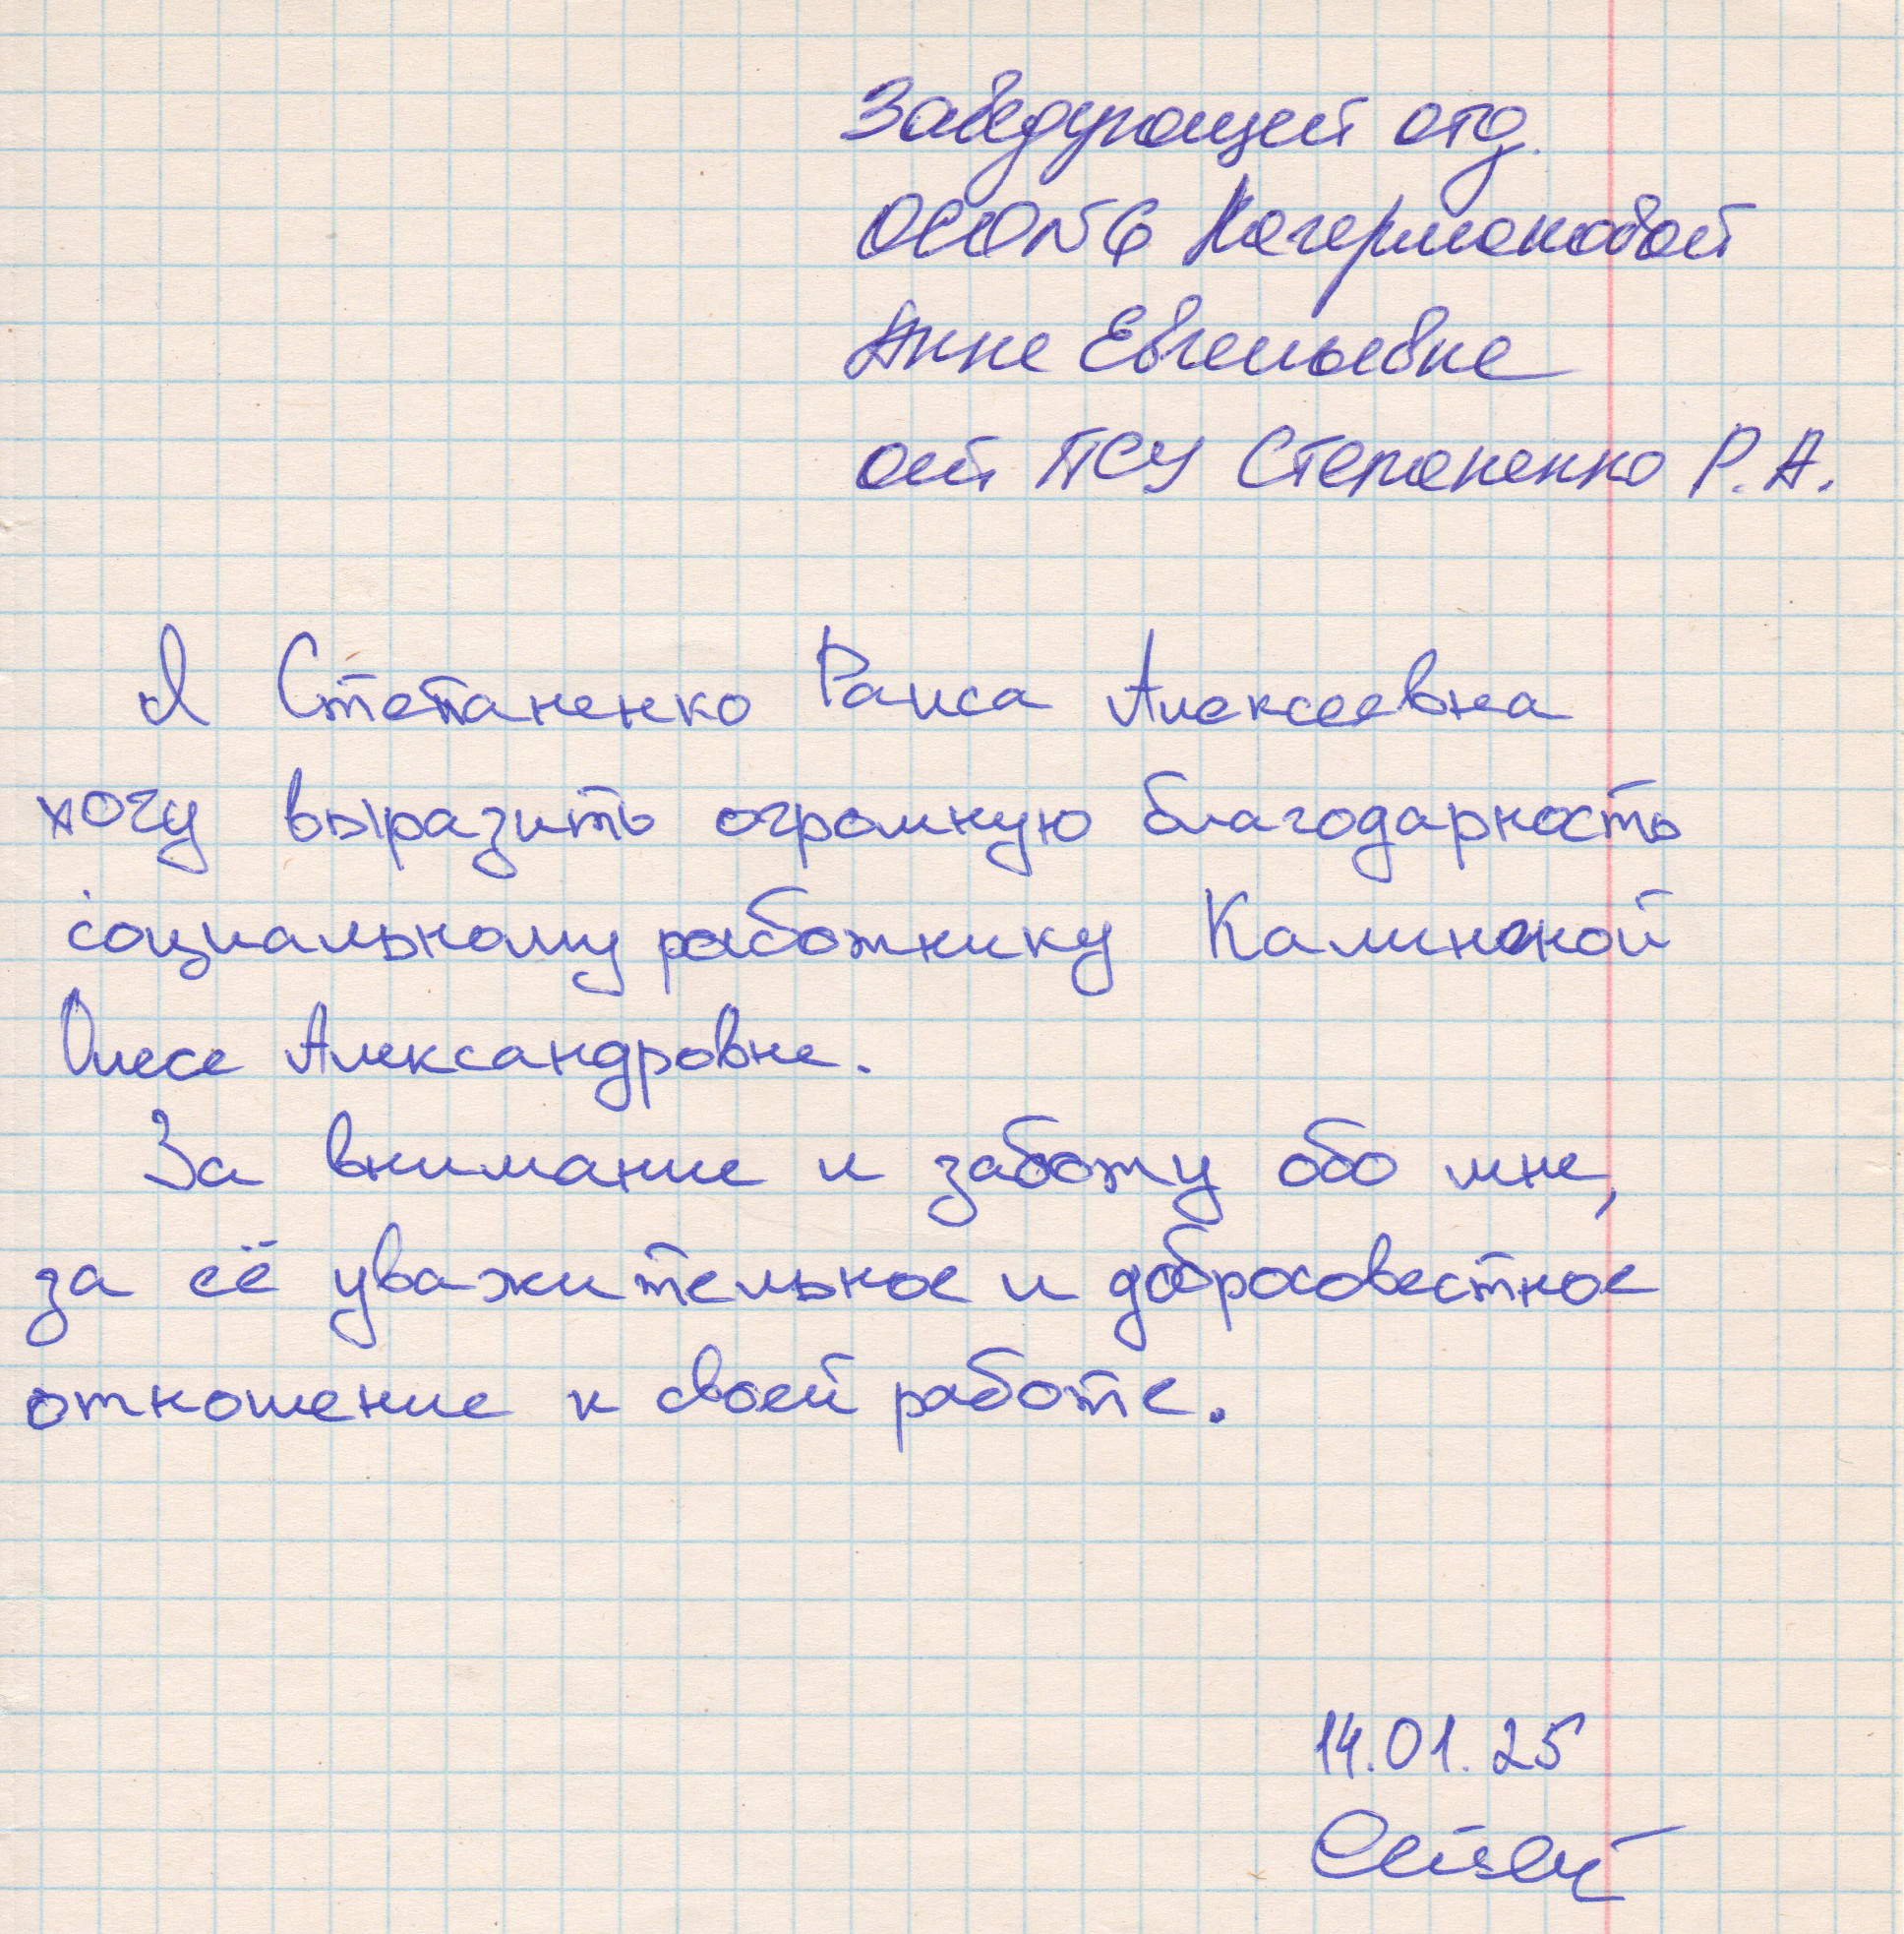 Заведующей отд.
ОСО №6 Кагермановой
Анне Евгеньевне
от ПСУ Степаненко Р.А.
Я Степаненко Раиса Алексеевна
хочу выразить огромную благодарность
социальному работнику
Олесе Александровне.
За внимание и заботу обо мне,
за её уважительное и добросовестное
отношение к своей работе.
14.01.25